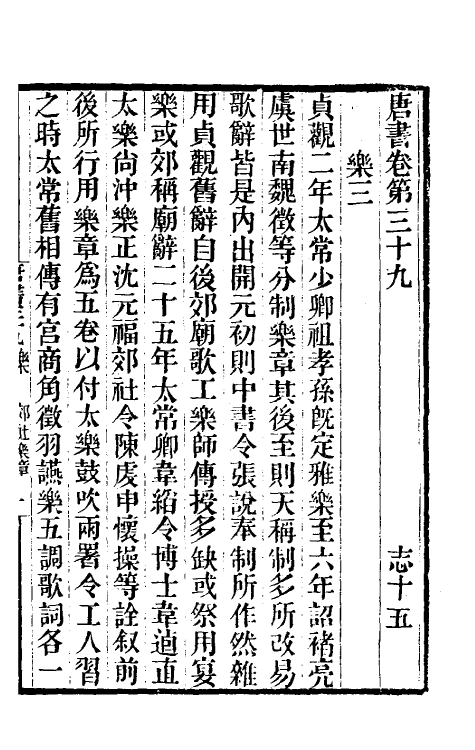 唐書卷第三十九　志十五
樂三
貞觀二年太常少卿祖孝孫旣定雅樂至六年詔褚亮
虞世南魏徵等分制樂章其後至則天稱制多所改易
歌辭皆是內出開元初則中書令張說奉制所作然雜
用貞觀舊辭自後郊廟歌工樂師傳授多缺或祭用宴
樂或郊稱廟辭二十五年太常卿韋縚令博士韋逌直
太樂尚沖樂正沈元福郊社令陳虔申懷操等詮叙前
後所行用樂章爲五卷以付太樂鼓吹兩署令工人習
之時太常舊相傳有宮商角徵羽讌樂五調歌詞各一
樂　郊社樂章　一